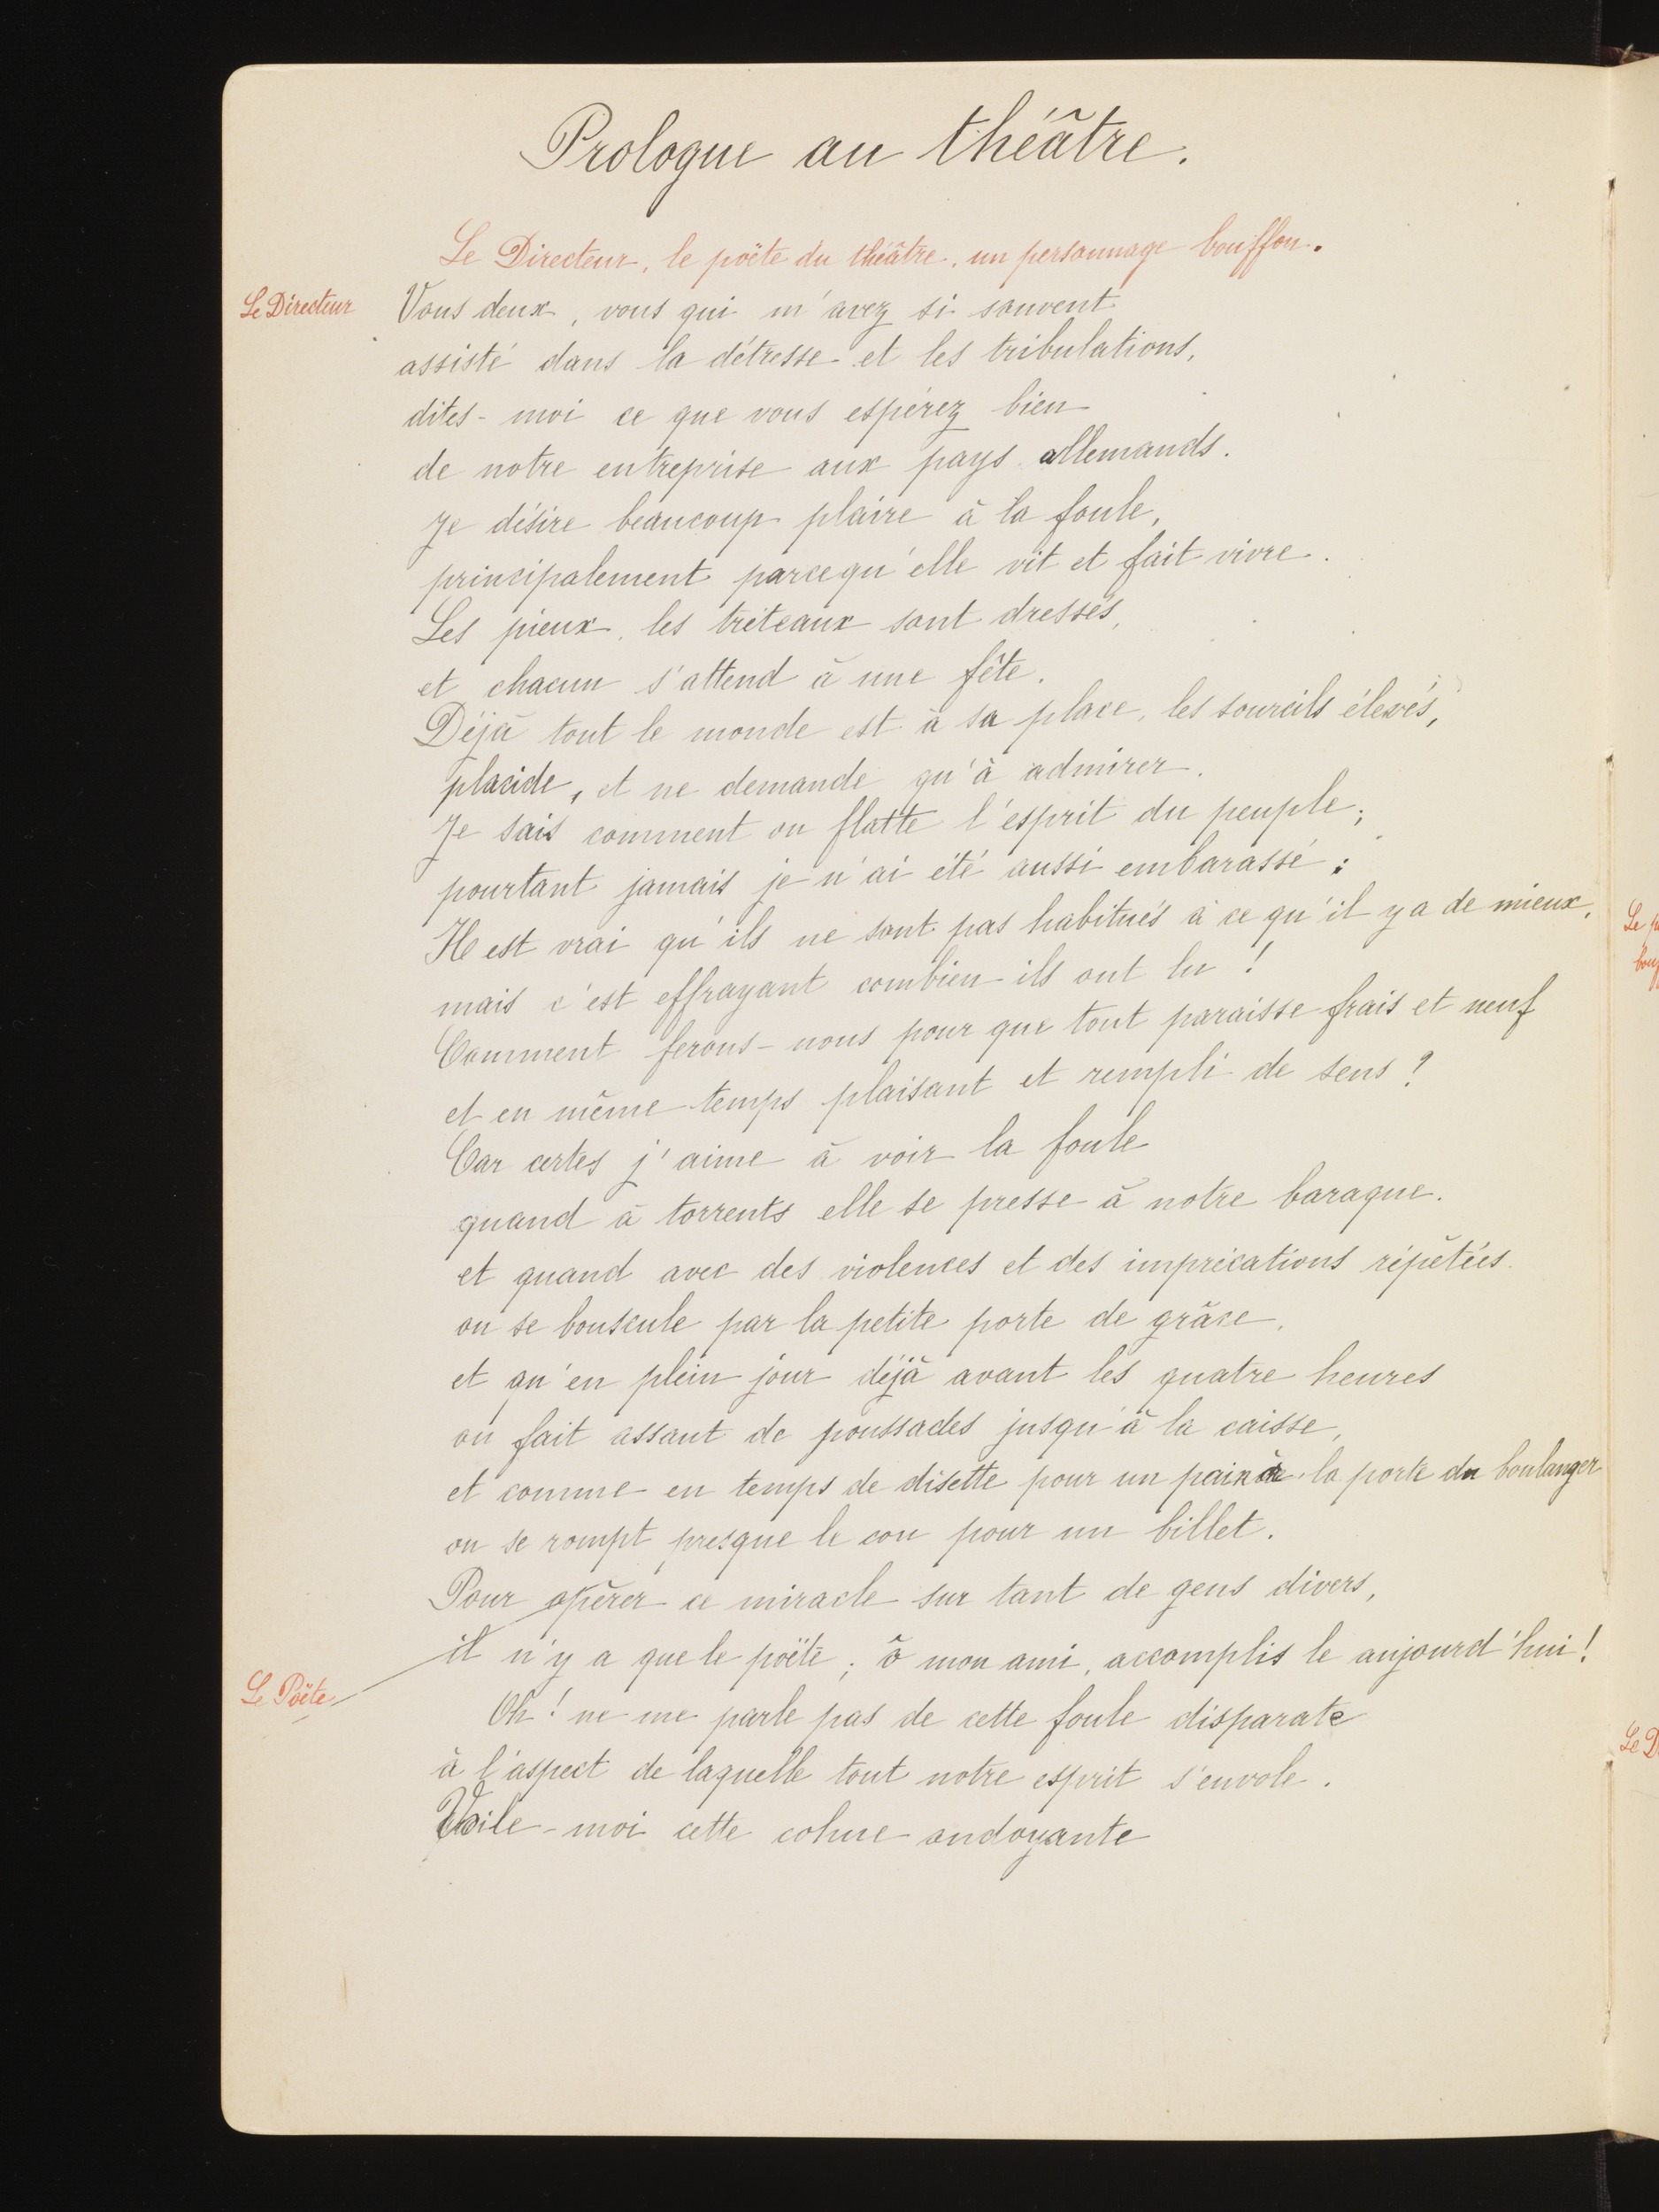 Prologue au théâtre.
Le Directeur, le poëte du théâtre, un personnage bouffon.
Le Directeur
Vous deux, vous qui m'avez si souvent
assisté dans la détresse et les tribulations,
dites-moi ce que vous espérez bien
de notre entreprise aux pays allemands.
Je désire beaucoup plaire à la foule,
principalement parcequ'elle vit et fait vivre.
Les pieux, les tréteaux sont dressés,
et chacun s'attend à une fête.
Déjà tout le monde est à sa place, les sourcils élevés,
placide, et ne demande qu'à admirer.
Je sais comment on flatte l'esprit du peuple;
pourtant jamais je n'ai été aussi embarassé:
Il est vrai qu'ils ne sont pas habitués à ce qu'il y a de mieux,
mais c'est effrayant combien ils ont lu!
Comment ferons-nous pour que tout paraisse frais et neuf
et en même temps plaisant et rempli de sens?
Car certes j'aime à voir la foule
quand à torrents elle se presse à notre baraque.
et quand avec des violences et des imprécations répétées
on se bouscule par la petite porte de grâce,
et qu'en plein jour déjà avant les quatre heures
on fait assaut de poussades jusqu'à la caisse,
et comme en temps de disette pour un pain à la porte du boulanger
on se rompt presque le cou pour un billet.
Pour opérer ce miracle sur tant de gens divers,
il n'y a que le poëte; ô mon ami, accomplis le aujourd'hui!
Le Poëte
Oh! ne me parle pas de cette foule disparate
à l'aspect de laquelle tout notre esprit s'envole.
Voile-moi cette cohue ondoyante
Le
Le D